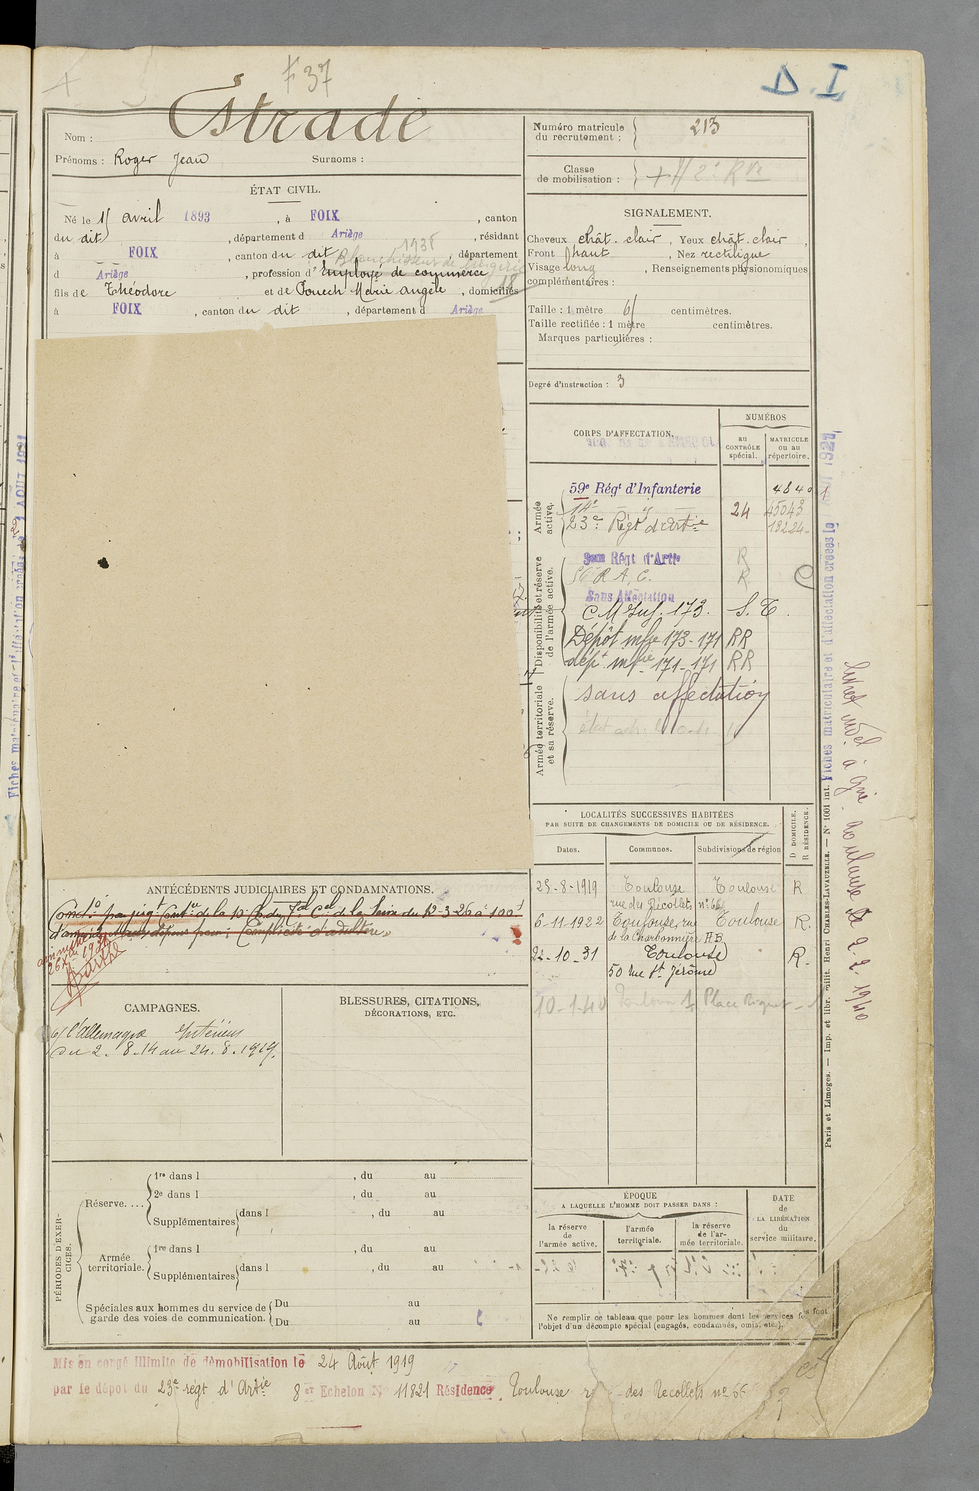 F 37
D. I.
Nom : Estrade
Prénoms : Roger Jean Surnoms :
Numéro matricule du recrutement : 213
Classe de mobilisation :
ÉTAT CIVIL.
Né le 15 avril 1893, à FOIX, canton
du dit, département d Ariège, résidant
à FOIX, canton du dit, département
1938
d Ariège, profession d'Employé de commerce
fils de Théodore et de Pouech Marie Angèle, domiciliés
à FOIX, canton du dit, département d Ariège
SIGNALEMENT.
Cheveux chât. clair, Yeux chât. clair,
Front haut, Nez rectiligne
Visage long, Renseignements physionomiques
complémentaires :
Taille : 1 mètre 61 centimètres.
Taille rectifiée : 1 mètre centimètres.
Marques particulières :
Degré d'instruction : 3
CORPS D'AFFECTATION.
NUMÉROS
au CONTRÔLE spécial.
MATRICULE ou au répertoire.
Armée active.
59e Régt d'Infanterie 4840
23e Régt d'Artie 24
Disponibilité et réserve de l'armée active.
Régt d'Artie R
R.A.C. R
Sans Affectation
C M Inf. 173. S. T.
Dépôt mfre 173-171 RR
dépt mfre 171-171 RR
Armée territoriale et sa réserve.
sans affectation
LOCALITÉS SUCCESSIVES HABITÉES
PAR SUITE DE CHANGEMENTS DE DOMICILE OU DE RÉSIDENCE.
Dates. Communes. Subdivisions de région
D DOMICILE. R RÉSIDENCE.
25-8-1919 Toulouse Toulouse R
rue des Récollets, n° 66
6-11-1922 Toulouse, rue Toulouse R.
de la Charbonnière
22-10-31 Toulouse R.
50 rue St Jérôme
10-1-40 Place Riquet
ANTÉCÉDENTS JUDICIAIRES ET CONDAMNATIONS.
de la Seine du 12-3-26 à 100f
d'amende pour : Complicité d'adultère
CAMPAGNES.
c/ l'Allemagne Intérieur
du 2.8.14 au 24.8.1919.
BLESSURES, CITATIONS,
DÉCORATIONS, ETC.
PÉRIODES D'EXERCICES.
Réserve....
1re dans l , du au
2e dans l , du au
Supplémentaires dans l , du au
Armée territoriale.
1re dans l , du au
Supplémentaires dans l , du au
Spéciales aux hommes du service de garde des voies de communication.
Du au
Du au
ÉPOQUE
A LAQUELLE L'HOMME DOIT PASSER DANS :
la réserve de l'armée active.
l'armée territoriale.
la réserve de l'armée territoriale.
DATE de LA LIBÉRATION du service militaire.
Ne remplir ce tableau que pour les hommes dont les services font
l'objet d'un décompte spécial (engagés, condamnés, omis, etc.).
Mis en congé illimité de démobilisation le 24 Août 1919
par le dépôt du 23e régt d'Artie 8e Echelon N° 11821 Résidence Toulouse r des Recollets n° 66
Paris et Limoges. — Imp. et libr. milit. Henri CHARLES-LAVAUZELLE. — N° 1001 int.
Fiches matriculaire et d'affectation créées le 1921
Livret indel à gie Toulouse le 2-2-1940